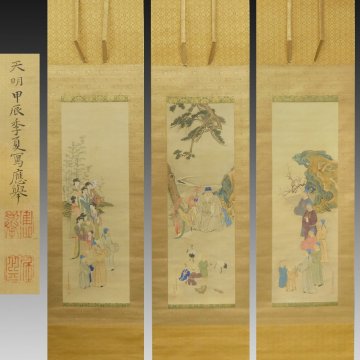 天明甲辰季夏寫應舉